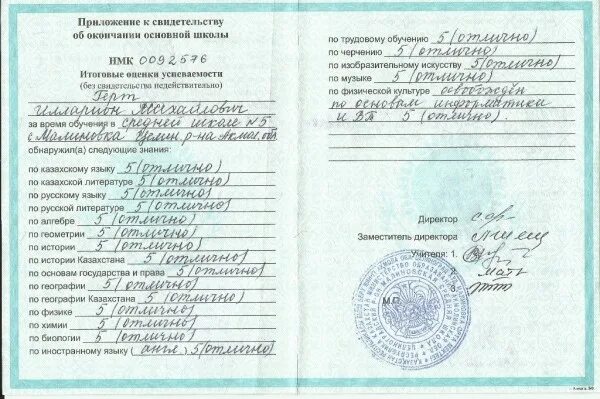 Приложение к свидетельству
об окончании основной школы
НМК 0092576
Итоговые оценки успеваемости
(без свидетельства недействительно)
Герт
Илларион Михайлович
за время обучения в средней школе №5
с Малиновка Целин р-на Акмол. обл
обнаружил(а) следующие знания:
по казахскому языку 5 (отлично)
по казахской литературе 5 (отлично)
по русскому языку 5 (отлично)
по русской литературе 5 (отлично)
по алгебре 5 (отлично)
по геометрии 5 (отлично)
по истории 5 (отлично)
по истории Казахстана 5 (отлично)
по основам государства и права 5 (отлично)
по географии 5 (отлично)
по географии Казахстана 5 (отлично)
по физике 5 (отлично)
по химии 5 (отлично)
по биологии 5 (отлично)
по иностранному языку (англ) 5 (отлично)
по трудовому обучению 5 (отлично)
по черчению 5 (отлично)
по изобразительному искусству 5 (отлично)
по музыке 5 (отлично)
по физической культуре освобождён
по основам информатики
и ВТ 5 (отлично)
Директор
Заместитель директора
Учителя: 1.
2.
3.
М.П.